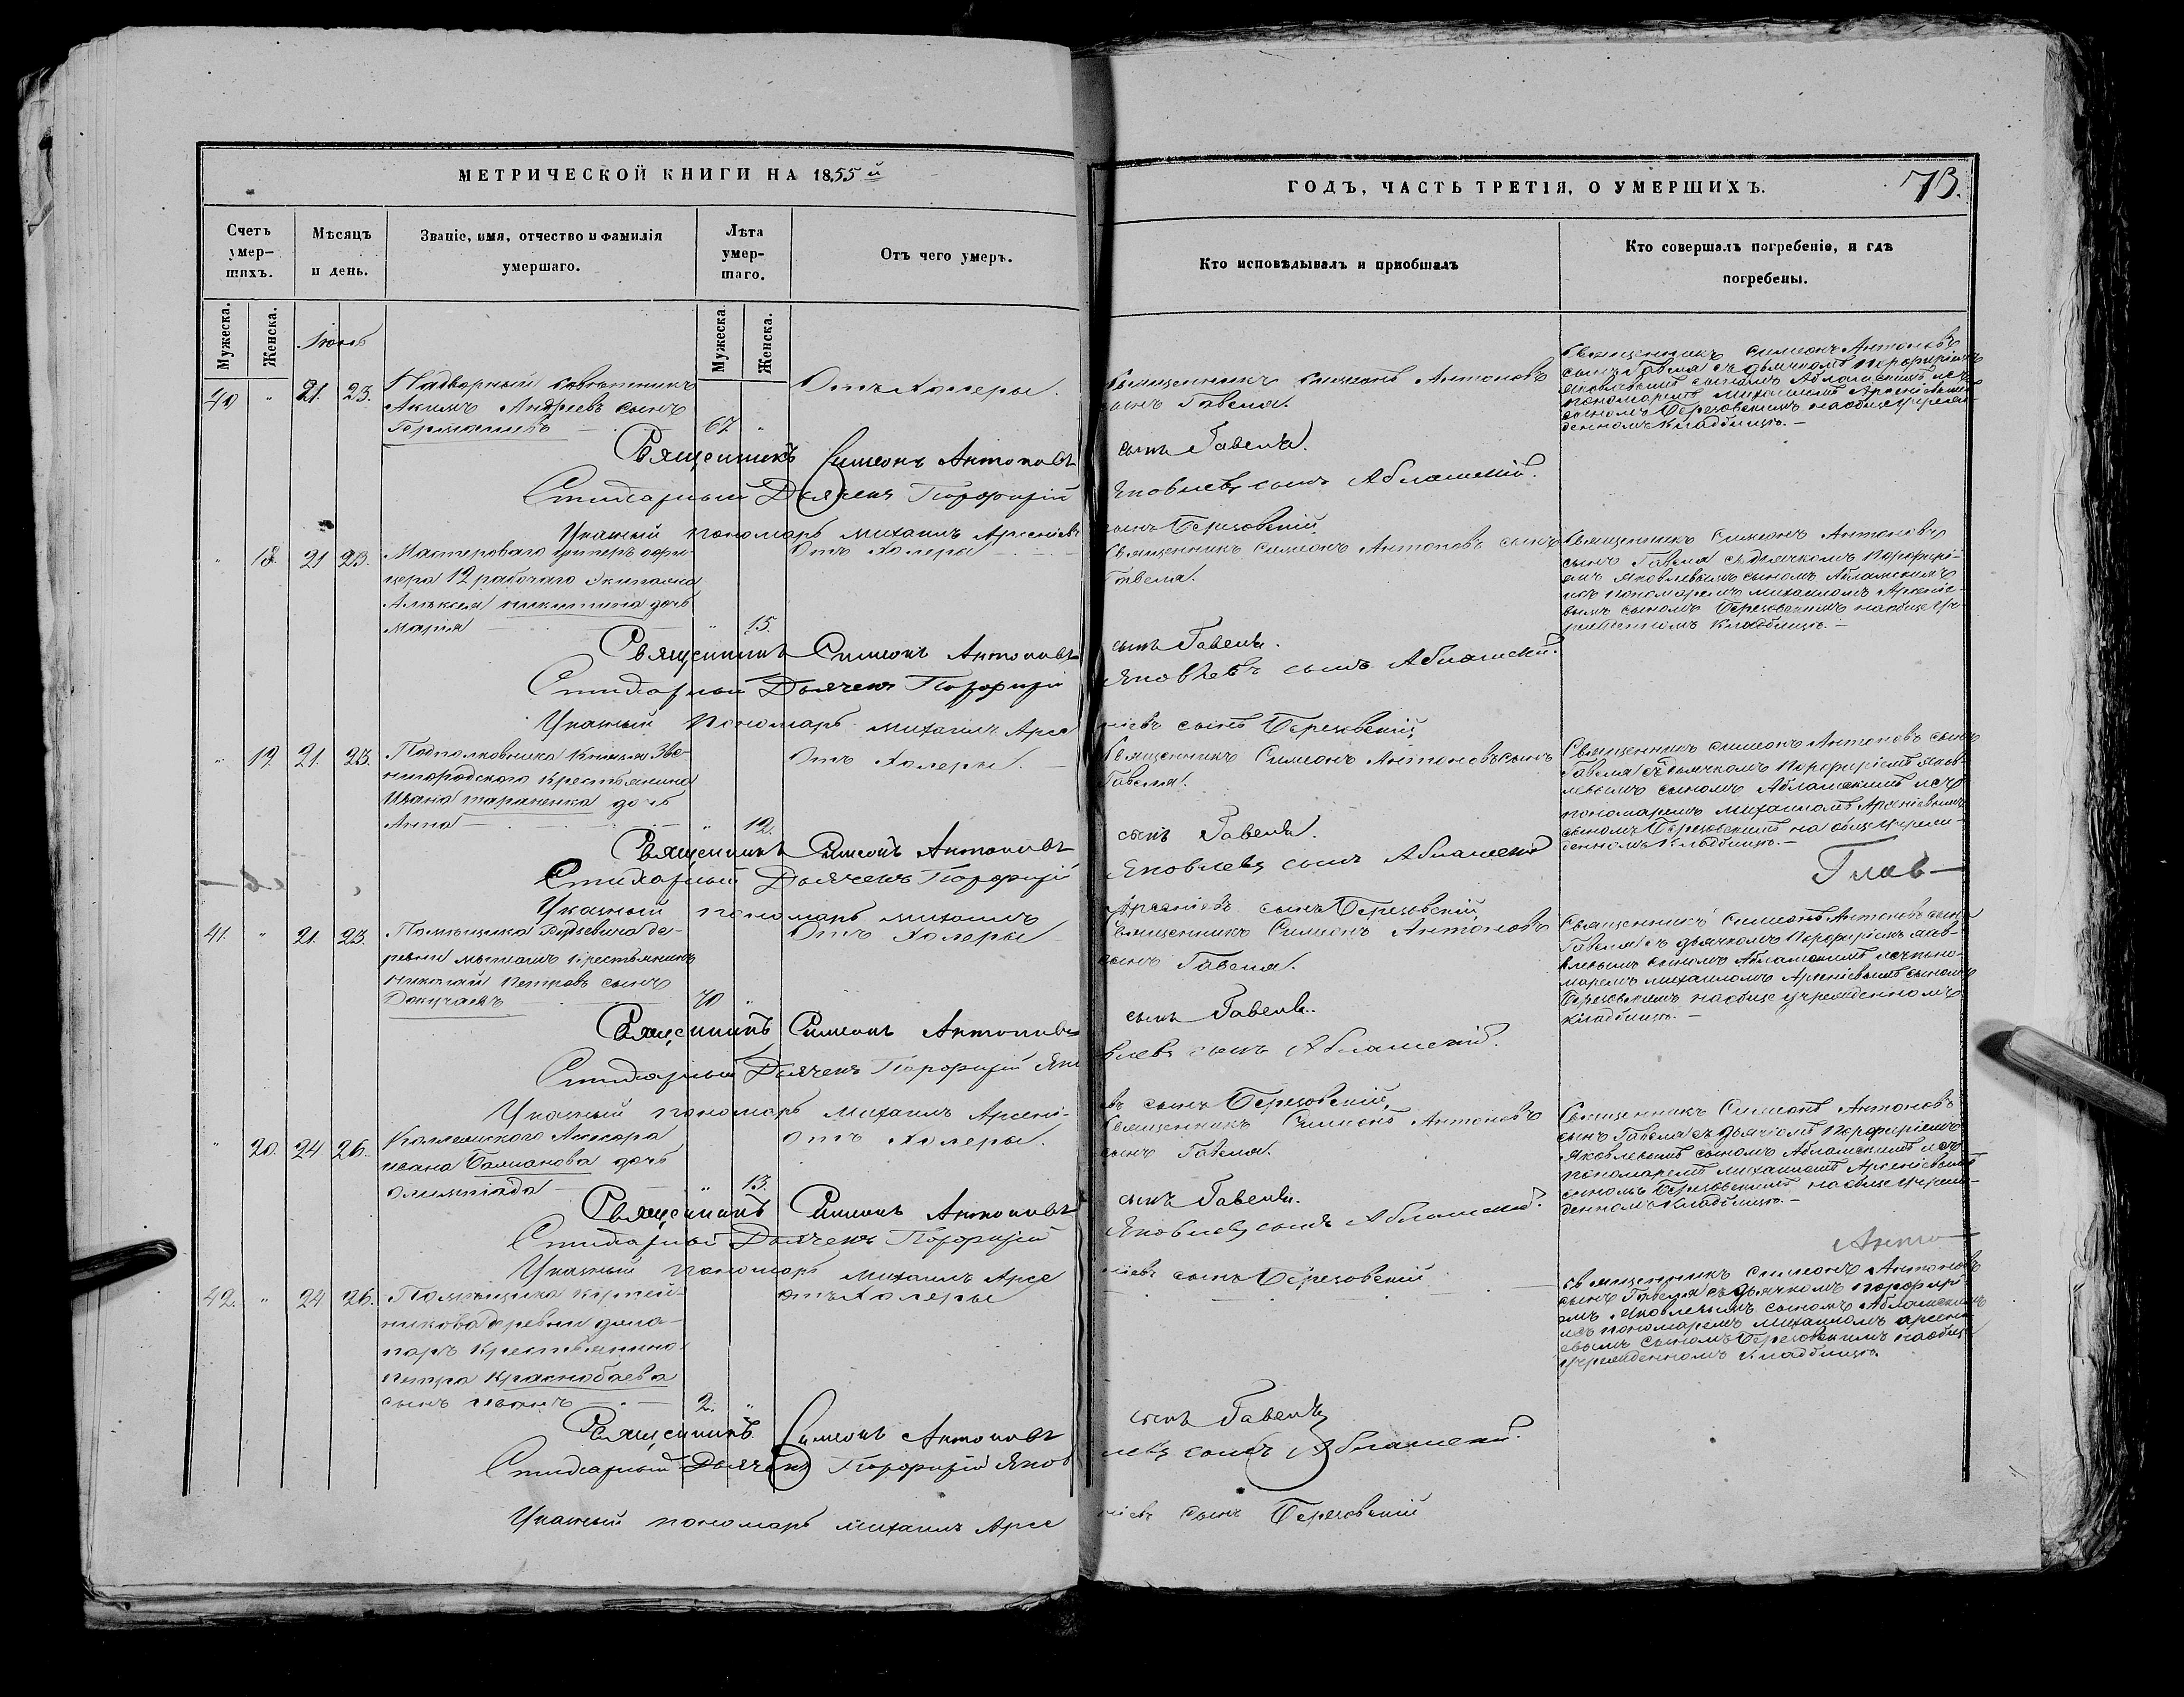 МЕТРИЧЕСКОЙ КНИГИ НА 1855й
ГОДЪ, ЧАСТЬ ТРЕТІЯ, О УМЕРШИХЪ.
73.
Счетъ умер-шихъ.
Мѣсяцъ и день.
Званіе, имя, отчество и фамилія умершаго.
Лѣта умер-шаго.
Отъ чего умеръ.
Кто исповѣдывалъ и приобщалъ
Кто совершалъ погребеніе, и гдѣ погребены.
Мужеска.
Женска.
Мужеска.
Женска.
40 " 21. 23.
Надворный Совѣтникъ
Акимъ Андреевъ сынъ
67 "
Отъ Холеры.
Священникъ Симеонъ Антоновъ
сынъ Гавеля.
Священникъ Симеонъ Антоновъ
сынъ Гавеля съ дьячкомъ Порфиріемъ
Яковлевымъ сыномъ
пономаремъ Михаиломъ Арсеніевымъ
сыномъ Березовскимъ на общеучреж-
денномъ кладбищѣ.
Священникъ Симеонъ Антоновъ сынъ Гавеля.
Стихарный Дьячекъ Порфирій Яковлевъ сынъ
Указный пономарь Михаилъ Арсеніевъ сынъ Березовскій
" 18 21 23.
Мастероваго унтеръ офи-
цера 12 рабочаго Экипажа
Алексея Никитина дочь
Марія
" 15.
Отъ Холеры
Священникъ Симеонъ Антоновъ сынъ
Гавеля.
Священникъ Симеонъ Антоновъ
сынъ Гавеля съ дьячкомъ Порфирі-
емъ Яковлевымъ сыномъ
пономаремъ Михаиломъ Арсеніе-
вымъ сыномъ Березовскимъ на общеуч-
кладбищѣ.
Священникъ Симеонъ Антоновъ сынъ Гавеля.
Стихарный Дьячекъ Порфирій Яковлевъ сынъ
Указный пономарь Михаилъ Арсеніевъ сынъ Березовскій
" 19. 21. 23.
Подполковника Князя Зве-
нигородского Крестьянина
Ивана Тараненка дочь
Анна
" 12.
Отъ Холеры.
Священникъ Симеонъ Антоновъ сынъ
Гавеля.
Священникъ Симеонъ Антоновъ сынъ
Гавеля съ дьячкомъ Порфиріемъ Яков-
левымъ сыномъ
пономаремъ Михаиломъ Арсеніевымъ
сыномъ Березовскимъ на общеучреж-
денномъ кладбищѣ.
Священникъ Симеонъ Антоновъ сынъ Гавеля.
Стихарный Дьячекъ Порфирій Яковлевъ сынъ
Глав-
Указный пономарь Михаилъ Арсеніевъ сынъ Березовскій
41. " 21. 23.
Помѣщика де-
ревни крестьянинъ
Николай Петровъ сынъ
Докучаевъ
70 "
Отъ Холеры
Священникъ Симеонъ Антоновъ
сынъ Гавеля.
Священникъ Симеонъ Антоновъ сынъ
Гавеля съ дьячкомъ Порфиріемъ Яков-
левымъ сыномъ
Михаиломъ Арсеніевымъ сыномъ
Березовскимъ на общеучрежденномъ
кладбищѣ.
Священникъ Симеонъ Антоновъ сынъ Гавеля.
Стихарный Дьячекъ Порфирій Яковлевъ сынъ
Указный пономарь Михаилъ Арсеніевъ сынъ Березовскій
" 20. 24 26.
Ивана дочь
Олимпіада
" 13.
Отъ Холеры.
Священникъ Симеонъ Антоновъ
сынъ Гавеля.
Священникъ Симеонъ Антоновъ
сынъ Гавеля съ дьячкомъ Порфиріемъ
Яковлевымъ сыномъ
пономаремъ Михаиломъ Арсеніевымъ
сыномъ Березовскимъ на общеучреж-
денномъ кладбищѣ.
Священникъ Симеонъ Антоновъ сынъ Гавеля.
Стихарный Дьячекъ Порфирій Яковлевъ сынъ
Указный пономарь Михаилъ Арсеніевъ сынъ Березовскій
42. " 24 26.
Помѣщика
деревни
крестьянина
Петра Краснобаева
сынъ
2. "
отъ Холеры
Священникъ Симеонъ Антоновъ
сынъ Гавеля съ дьячкомъ Порфирі-
емъ Яковлевымъ сыномъ
пономаремъ Михаиломъ Арсені-
евымъ сыномъ Березовскимъ на обще-
учрежденномъ кладбищѣ.
Священникъ Симеонъ Антоновъ сынъ Гавеля
Стихарный Дьячекъ Порфирій Яковлевъ сынъ
Указный пономарь Михаилъ Арсеніевъ сынъ Березовскій